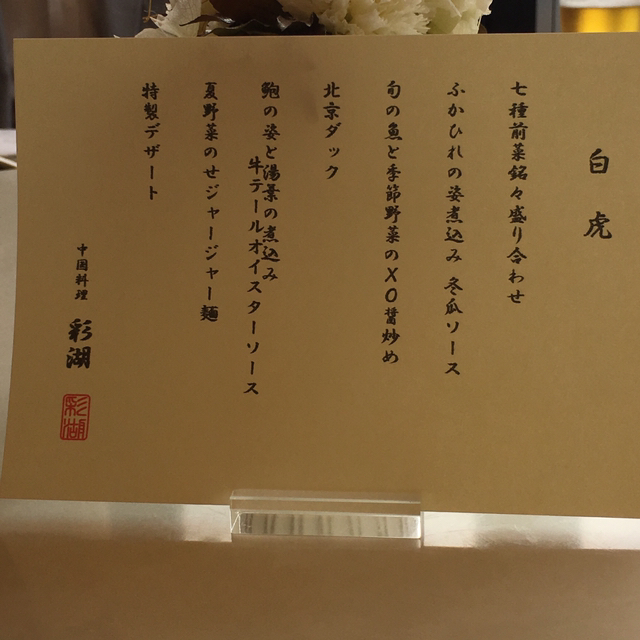 白虎
七種前菜銘々盛り合わせ
ふかひれの姿煮込み 冬瓜ソース
旬の魚と季節野菜のXO醤炒め
北京ダック
鮑の姿と湯葉の煮込み
牛テールオイスターソース
夏野菜のせジャージャー麺
特製デザート
中国料理 彩湖
彩湖